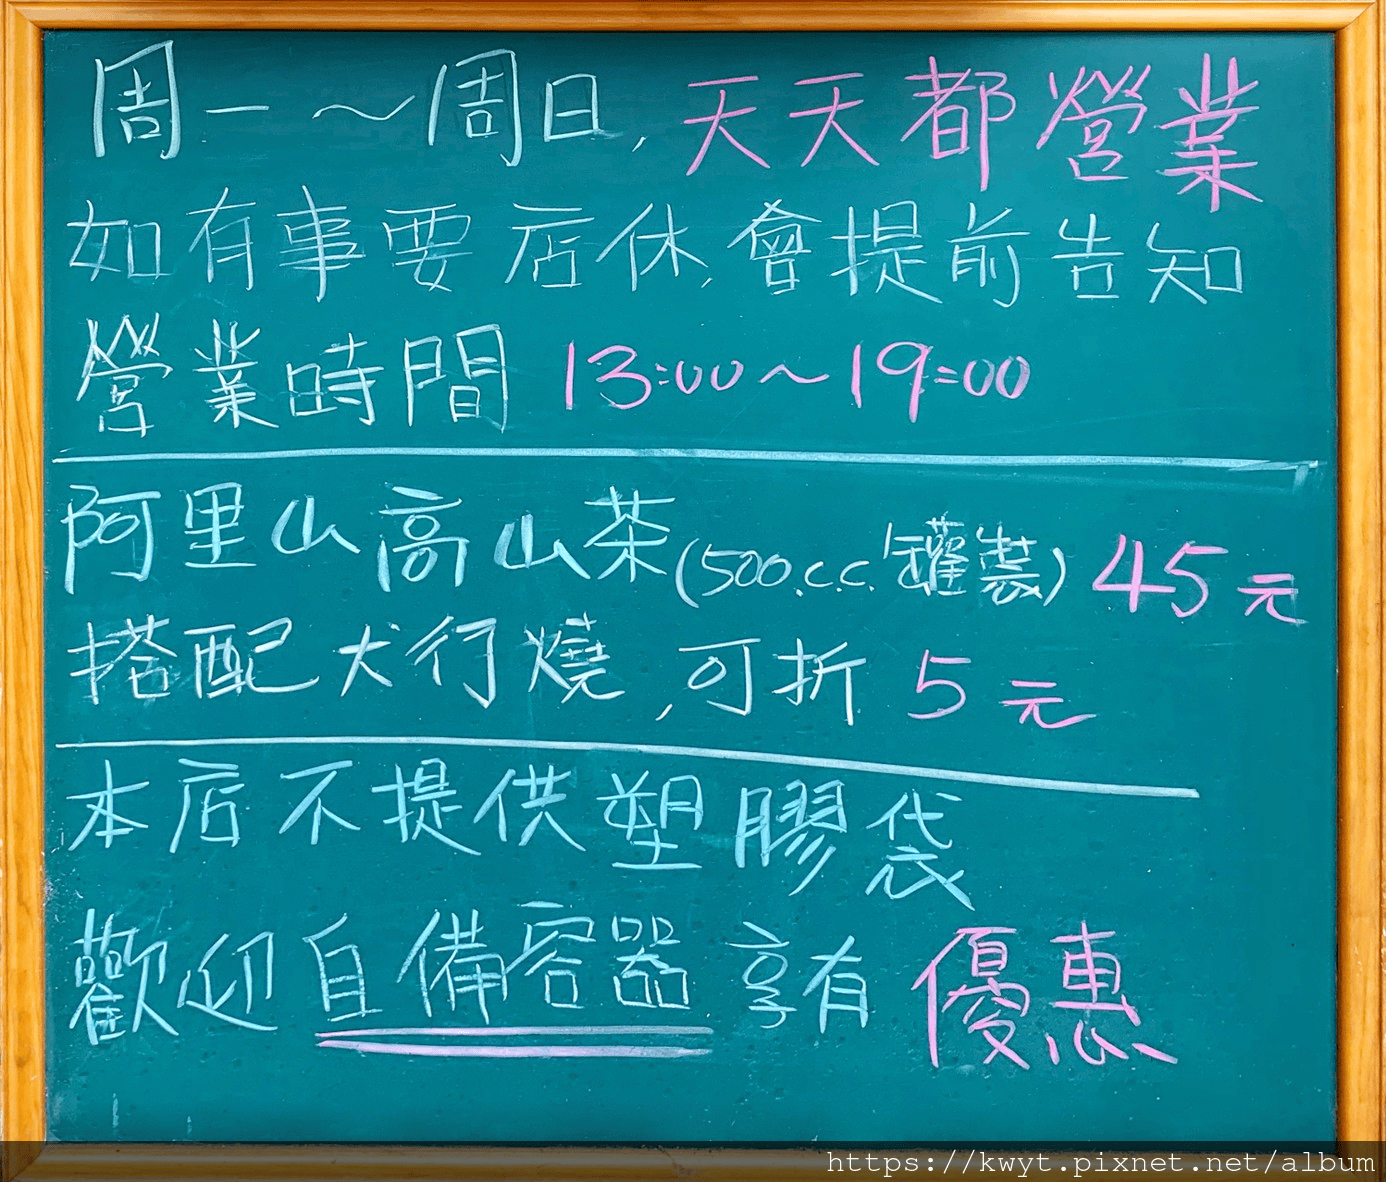 周一～周日,天天都營業
如有事要店休,會提前告知
營業時間 13:00～19:00
阿里山高山茶(500c.c.罐裝)45元
搭配犬行燒,可折5元
本店不提供塑膠袋
歡迎自備容器享有優惠
https://kwyt.pixnet.net/album